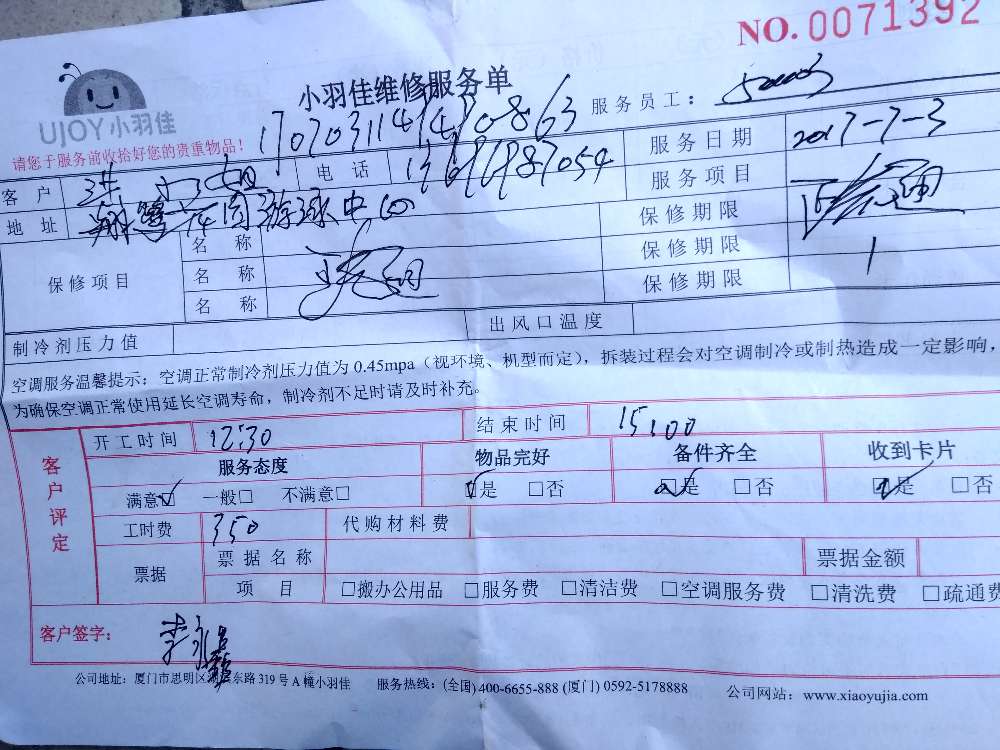 NO. 0071392
小羽佳维修服务单
UJOY小羽佳
服务员工：
请您于服务前收拾好您的贵重物品！
170703114140863
客户 电话 服务日期 2017-7-3
地址 游泳中心 服务项目
保修项目 名称 保修期限
名称 保修期限
名称 保修期限
制冷剂压力值 出风口温度
空调服务温馨提示：空调正常制冷剂压力值为0.45mpa（视环境、机型而定），拆装过程会对空调制冷或制热造成一定影响，
为确保空调正常使用延长空调寿命，制冷剂不足时请及时补充。
客户评定
开工时间 12:30 结束时间 15:00
服务态度 物品完好 备件齐全 收到卡片
满意☑ 一般□ 不满意□ ☑是 □否 ☑是 □否 ☑是 □否
工时费 350 代购材料费
票据 票据名称 票据金额
项目 □搬办公用品 □服务费 □清洁费 □空调服务费 □清洗费 □疏通费
客户签字：
公司地址：厦门市思明区 东路319号A幢小羽佳 服务热线：(全国)400-6655-888 (厦门) 0592-5178888 公司网站：www.xiaoyujia.com